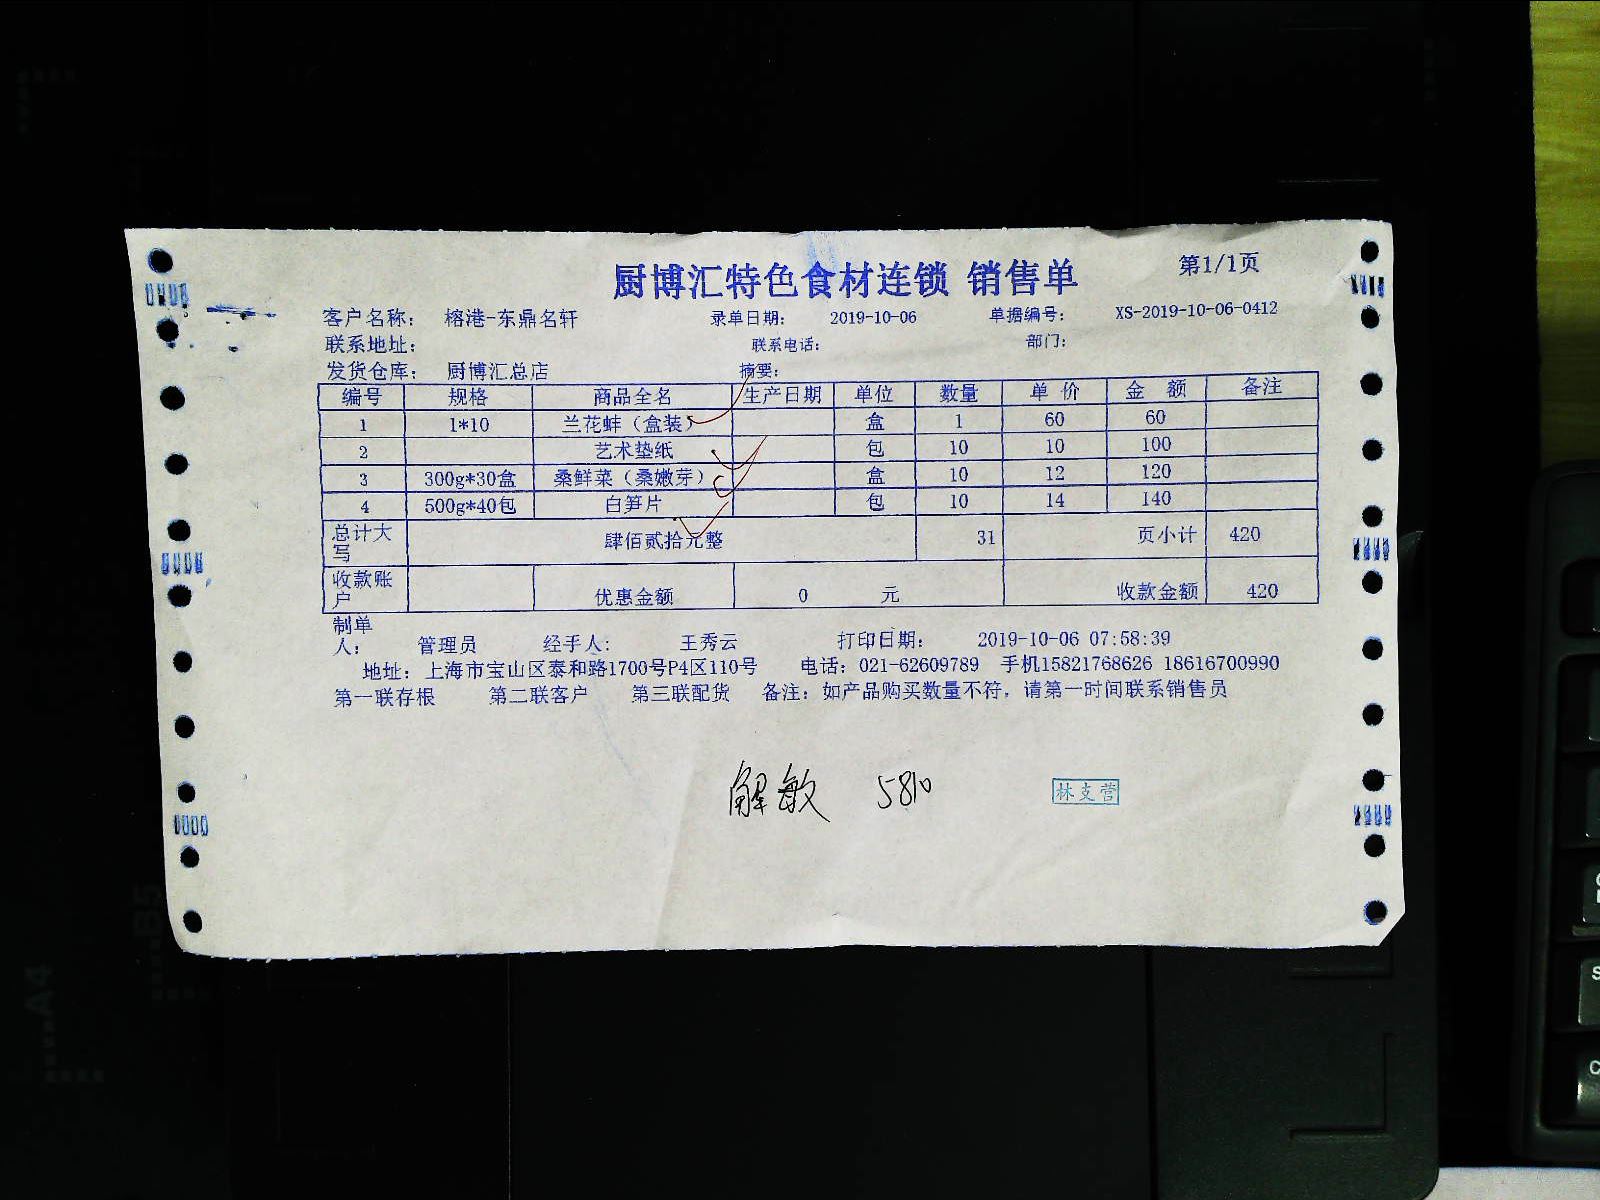 厨博汇特色食材连锁 销售单 第1/1页
客户名称: 榕港-东鼎名轩 录单日期: 2019-10-06 单据编号: XS-2019-10-06-0412
联系地址: 联系电话: 部门:
发货仓库: 厨博汇总店 摘要:
编号 规格 商品全名 生产日期 单位 数量 单 价 金 额 备注
1 1*10 兰花蚌（盒装） 盒 1 60 60
2 艺术垫纸 包 10 10 100
3 300g*30盒 桑鲜菜（桑嫩芽） 盒 10 12 120
4 500g*40包 白笋片 包 10 14 140
总计大写 肆佰贰拾元整 31 页小计 420
收款账户 优惠金额 0 元 收款金额 420
制单人: 管理员 经手人: 王秀云 打印日期: 2019-10-06 07:58:39
地址: 上海市宝山区泰和路1700号P4区110号 电话: 021-62609789 手机15821768626 18616700990
第一联存根 第二联客户 第三联配货 备注: 如产品购买数量不符, 请第一时间联系销售员
解敏 5810 林支营
A4
B5